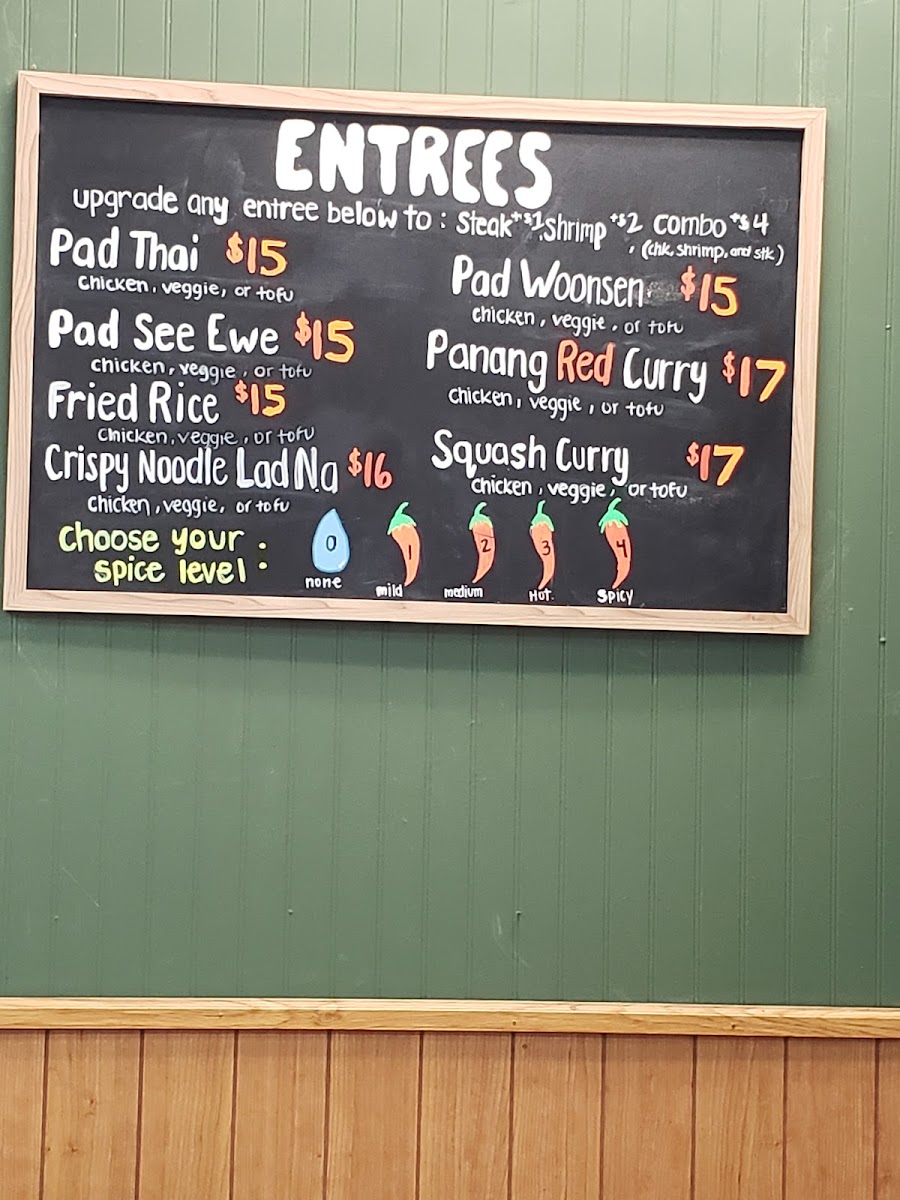 ENTREES
upgrade any entree below to: Steak +$1, Shrimp +$2 combo +$4
(chk, shrimp, and stk)
Pad Thai $15
chicken, veggie, or tofu
Pad See Ewe $15
chicken, veggie, or tofu
Fried Rice $15
chicken, veggie, or tofu
Crispy Noodle Lad Na $16
chicken, veggie, or tofu
Pad Woonsen $15
chicken, veggie, or tofu
Panang Red Curry $17
chicken, veggie, or tofu
Squash Curry $17
chicken, veggie, or tofu
Choose your spice level:
0 1 2 3 4
none mild medium HOT. Spicy